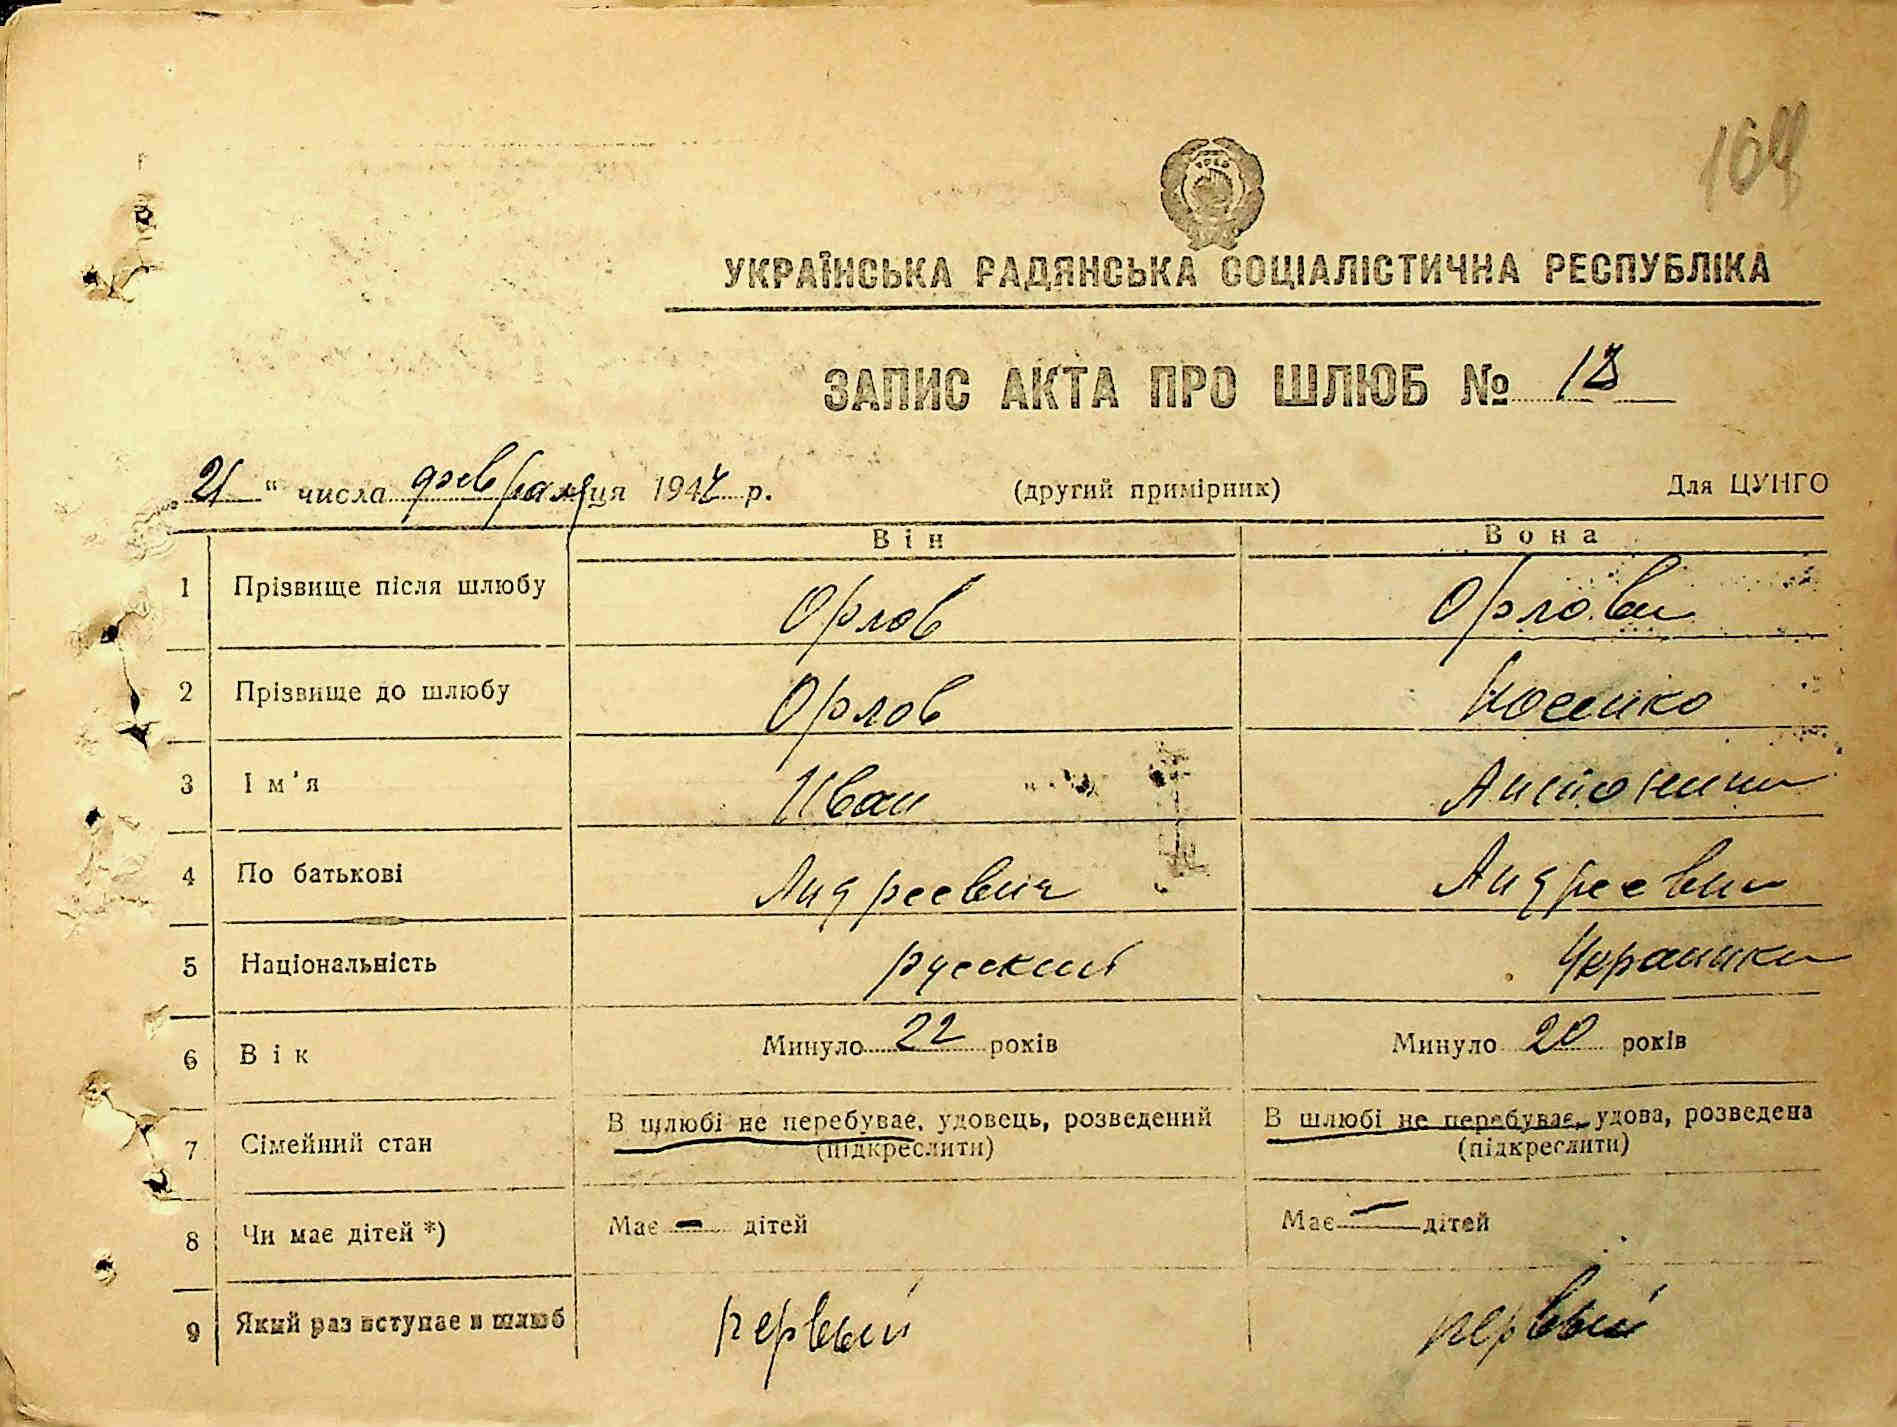 УКРАЇНСЬКА РАДЯНСЬКА СОЦІАЛІСТИЧНА РЕСПУБЛІКА
ЗАПИС АКТА ПРО ШЛЮБ №
„21“ числа февраля ця 194 р. (другий примірник) Для ЦУНГО
Він Вона
1 Прізвище після шлюбу Орлов Орлова
2 Прізвище до шлюбу Орлов Носенко
3 Ім'я Иван Антонина
4 По батькові Андреевич Андреевна
5 Національність русский Украинка
6 Вік Минуло 22 років Минуло 20 років
7 Сімейний стан В шлюбі не перебуває, удовець, розведений В шлюбі не перебуває, удова, розведена
(підкреслити) (підкреслити)
8 Чи має дітей *) Має – дітей Має – дітей
9 Який раз вступає в шлюб первый первый